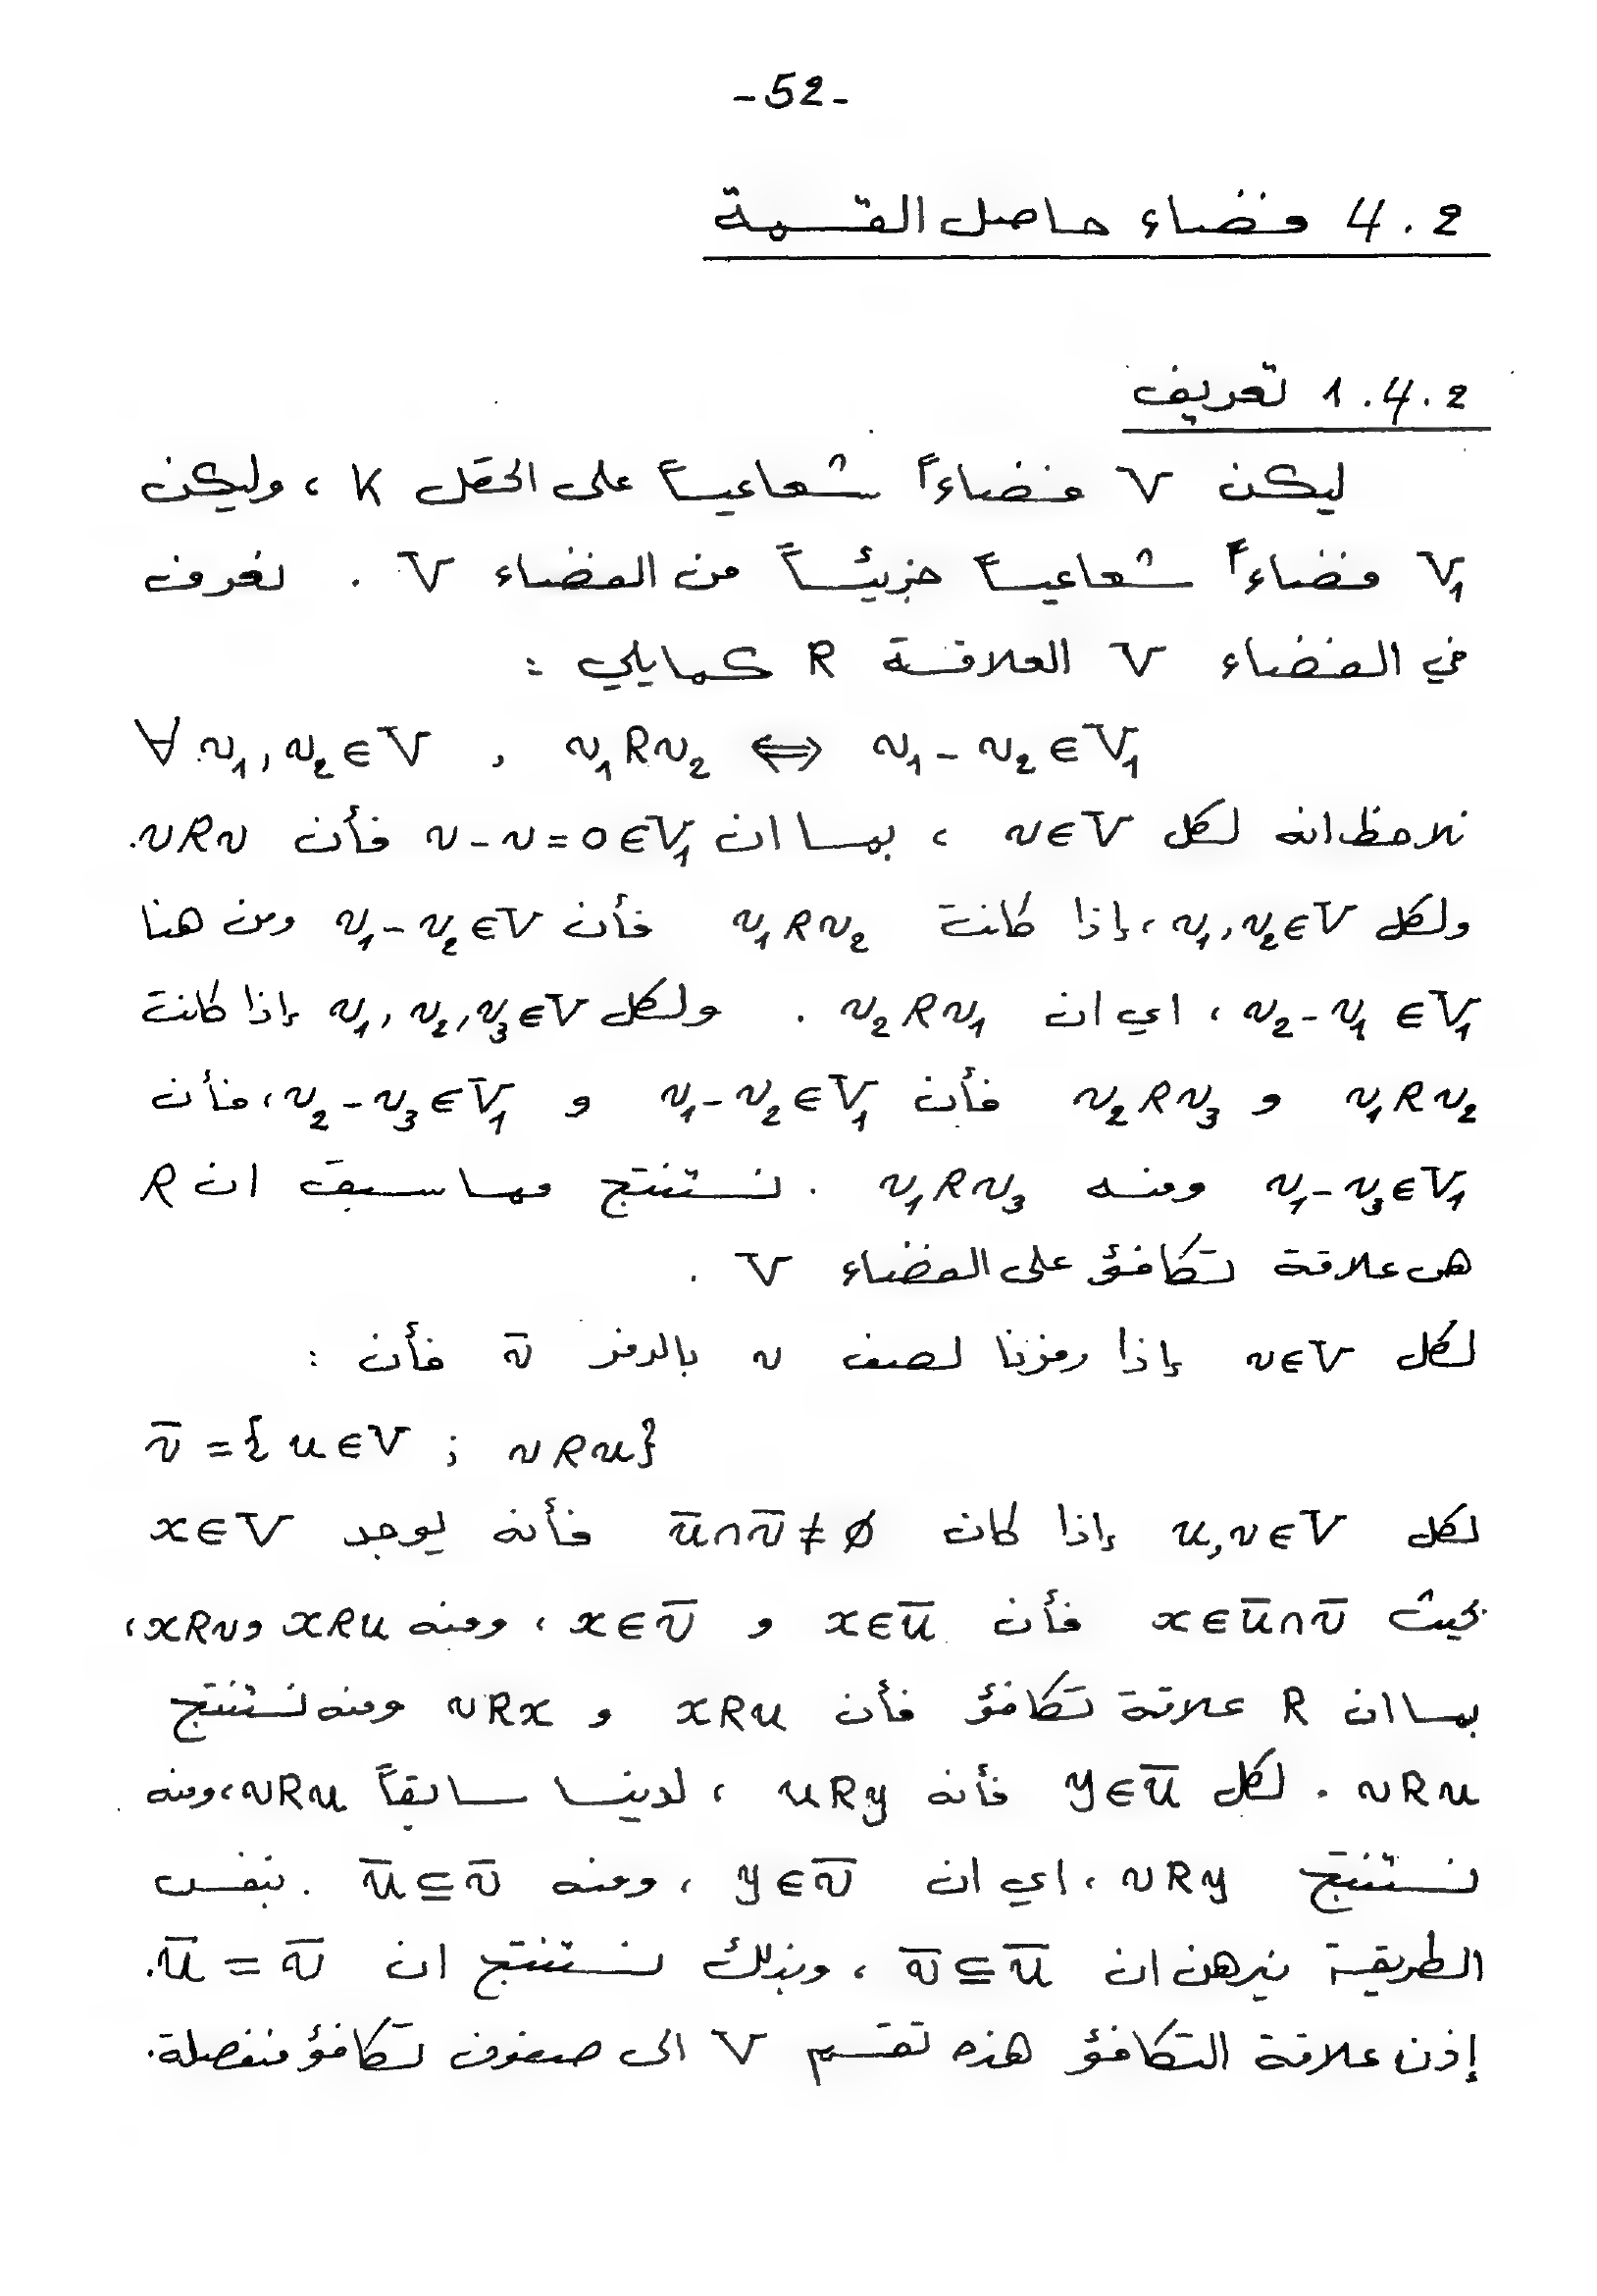 -52-
4.2 فضاء حاصل القسمة
1.4.2 تعريف
ليكن V فضاءاً شعاعياً على الحقل K ، وليكن
V₁ فضاءاً شعاعياً جزيئاً من الفضاء V . نعرف
في الفضاء V العلاقة R كمايلي :
∀ v₁, v₂ ∈ V , v₁Rv₂ ⇔ v₁ - v₂ ∈ V₁
نلاحظ انه لكل v∈V ، بما ان v - v = 0 ∈ V₁ فأن vRv.
ولكل v₁,v₂∈V ، إذا كانت v₁Rv₂ فأن v₁-v₂∈V ومن هنا
v₂-v₁ ∈V₁ ، اي ان v₂Rv₁ . ولكل v₁,v₂,v₃∈V إذا كانت
v₁Rv₂ و v₂Rv₃ فأن v₁-v₂∈V₁ و v₂-v₃∈V₁ ، فأن
v₁-v₃∈V₁ ومنه v₁Rv₃ . نستنتج مما سبق ان R
هي علاقة تكافؤ على الفضاء V .
لكل v∈V إذا رمزنا لصف v بالرمز v̄ فأن :
v̄ = { u∈V ; vRu}
لكل u,v∈V إذا كان ū∩v̄ ≠ ∅ فأنه يوجد x∈V
بحيث x∈ū∩v̄ فأن x∈ū و x∈v̄ ، ومنه xRu و xRv ،
بما ان R علاقة تكافؤ فأن xRu و vRx ومنه نستنتج
vRu . لكل y∈ū فأنه uRy ، لدينا سابقاً vRu ، ومنه
نستنتج vRy ، اي ان y∈v̄ ، ومنه ū⊆v̄ . بنفس
الطريقة نبرهن ان v̄⊆ū ، وبذلك نستنتج ان ū = v̄.
إذن علاقة التكافؤ هذه تقسم V الى صفوف تكافؤ منفصلة.